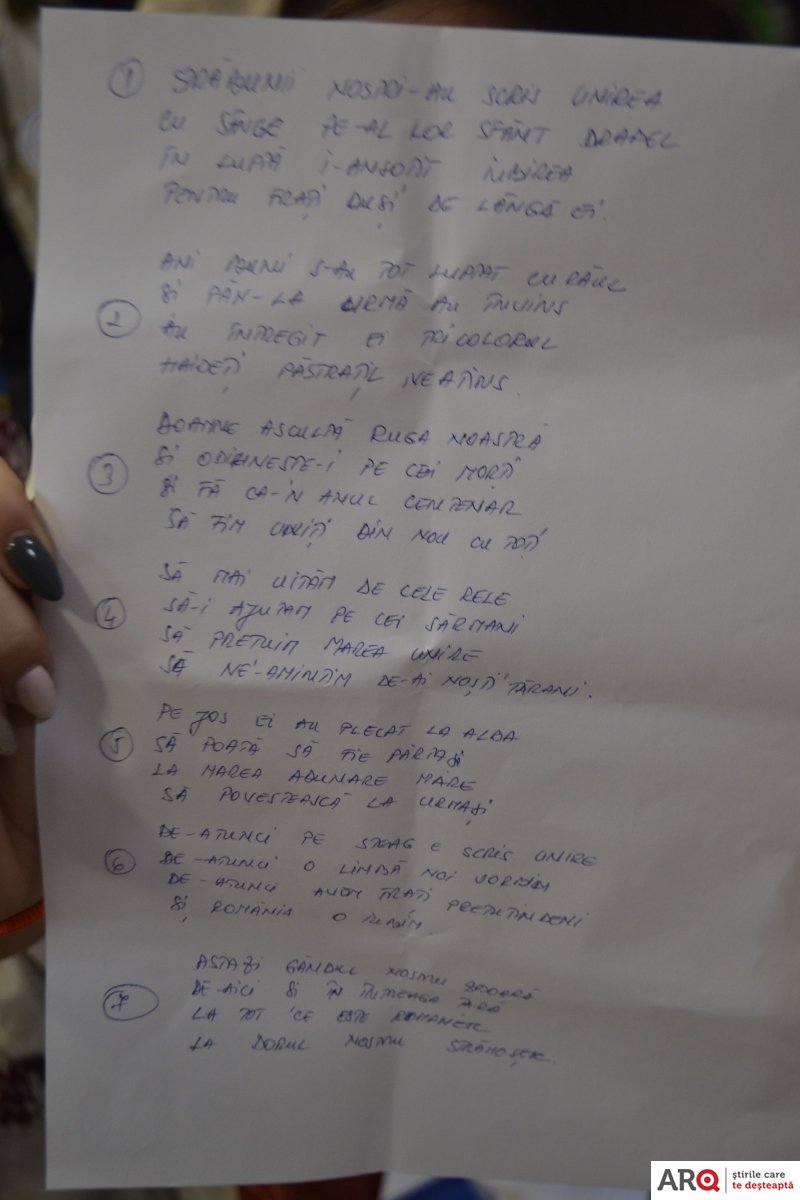 1 STRĂBUNII NOȘTRI-AU SCRIS UNIREA
CU SÂNGE PE-AL LOR SFÂNT DRAPEL
ÎN LUPTĂ I-A ÎNSOȚIT IUBIREA
PENTRU FRAȚI DUȘI DE LÂNGĂ EI.
ANI BUNI S-AU TOT LUPTAT CU RĂUL
ȘI PÂN-LA URMĂ AU ÎNVINS
2 AU ÎNTREGIT EI TRICOLORUL
HAIDEȚI PĂSTRAȚIL NEATINS.
DOAMNE ASCULTĂ RUGA NOASTRĂ
ȘI ODIHNEȘTE-I PE CEI MORȚI
3 ȘI FĂ CA-N ANUL CENTENAR
SĂ FIM UNIȚI DIN NOU CU TOȚI
SĂ MAI UITĂM DE CELE RELE
4 SĂ-I AJUTAM PE CEI SĂRMANI
SĂ PREȚUIM MAREA UNIRE
SĂ NE-AMINTIM DE-AI NOȘTI ȚĂRANI.
PE JOS EI AU PLECAT LA ALBA
5 SĂ POATĂ SĂ FIE PĂRTAȘI
LA MAREA ADUNARE MARE
SĂ POVESTEASCĂ LA URMAȘI
DE-ATUNCI PE STEAG E SCRIS UNIRE
6 DE-ATUNCI O LIMBĂ NOI VORBIM
DE-ATUNCI AVEM FRAȚI PRETUTINDENI
ȘI ROMÂNIA O IUBIM.
ASTAZI GÂNDUL NOSTRU ZBOARĂ
7 DE-AICI ȘI ÎN ÎNTREAGA ȚARĂ
LA TOT CE ESTE ROMÂNESC
LA DORUL NOSTRU STRĂMOȘESC.
ARQ știrile care
te deșteaptă